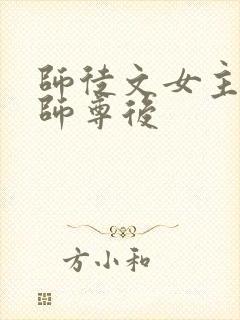 師徒文女主
師尊後
方小和